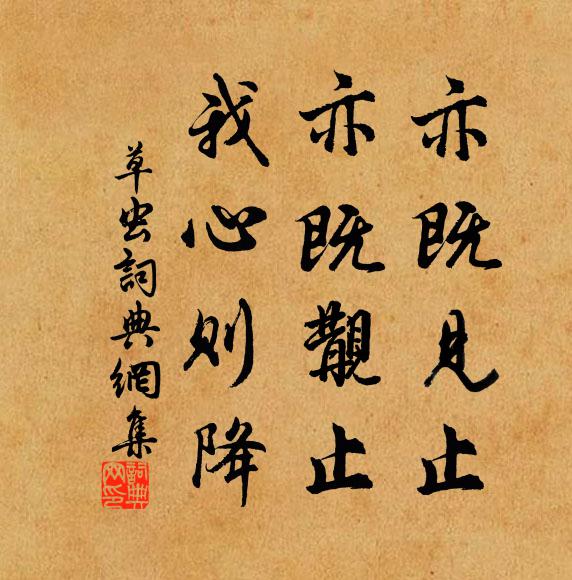 亦既見止
亦既覯止
我心則降
草虫詞典網集
詞典网印